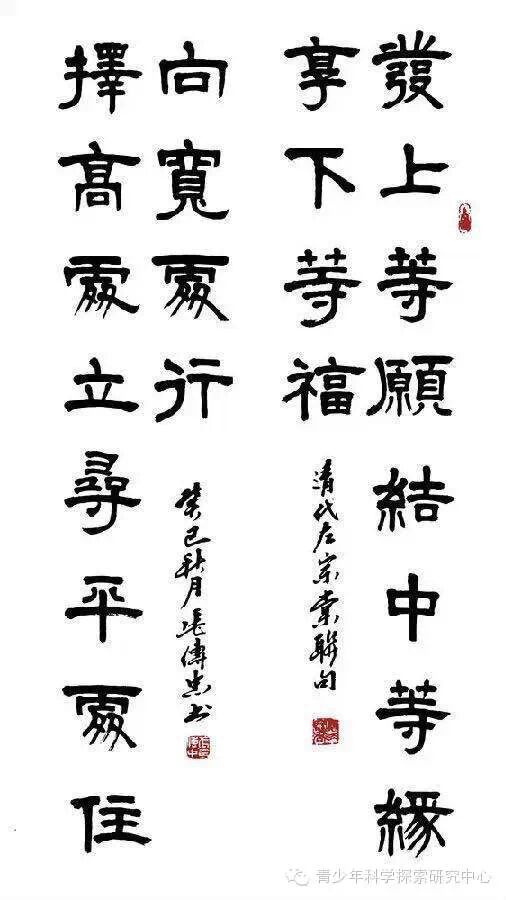 發上等願結中等緣
享下等福
清代左宗棠聯句
擇高處立尋平處住
向寬處行
癸巳秋月張傳忠書
青少年科学探索研究中心